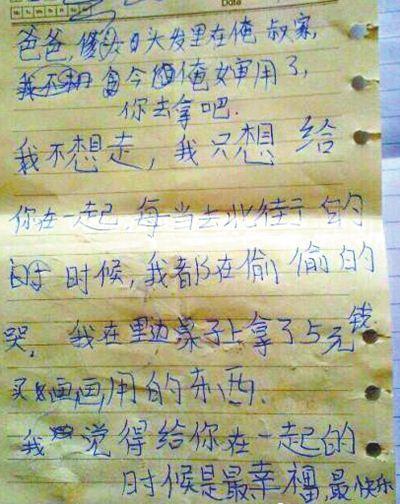 Date
爸爸,头发里在俺叔家,
我不今俺用了,
你去拿吧.
我不想走,我只想给
你在一起,每当去北街子的
时候,我都在偷偷的
哭,我在里边桌子上拿了5元钱
买画画用的东西.
我觉得给你在一起的
时候是最幸福,最快乐